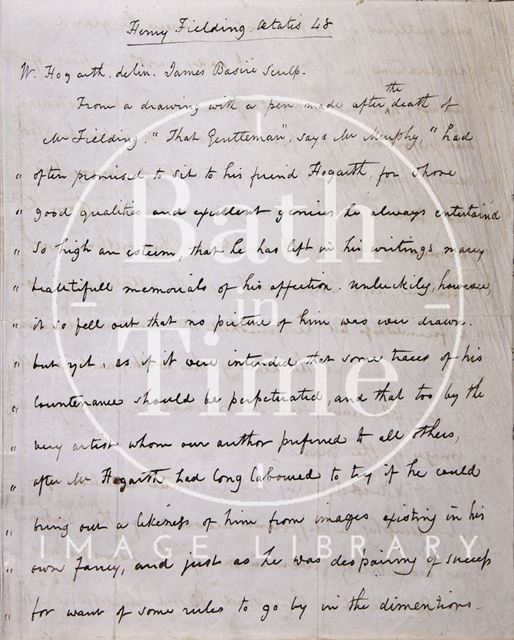 Henry Fielding. Ætatis 48
W. Hogarth. delin. James Basire Sculp.
From a drawing with a pen made after the death of
Mr Fielding. "That Gentleman", says Mr Murphy, "had
" often promised to sit to his friend Hogarth, for whose
" good qualities and excellent genius he always entertain'd
" so high an esteem, that he has left in his writings many
" beautifull memorials of his affection. Unluckily, however
" it so fell out that no picture of him was ever drawn.
" but yet, as if it were intended that some traces of his
" countenance should be perpetuated, and that too by the
" very artist whom our author preferred to all others,
" after Mr Hogarth had long laboured to try if he could
" bring out a likeness of him from images existing in his
" own fancy, and just as he was despairing of success
" for want of some rules to go by in the dimentions
Bath
in
Time
IMAGE LIBRARY